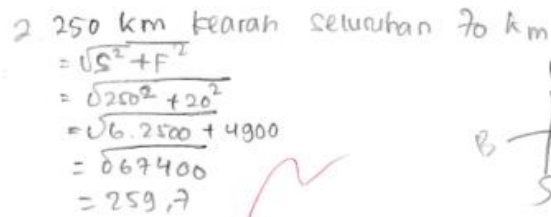 2. 250 km kearah seluruhan 70 km
= √S² + F²
= √250² + 20²
= √6.2500 + 4900
= √67400
= 259,7
B
S